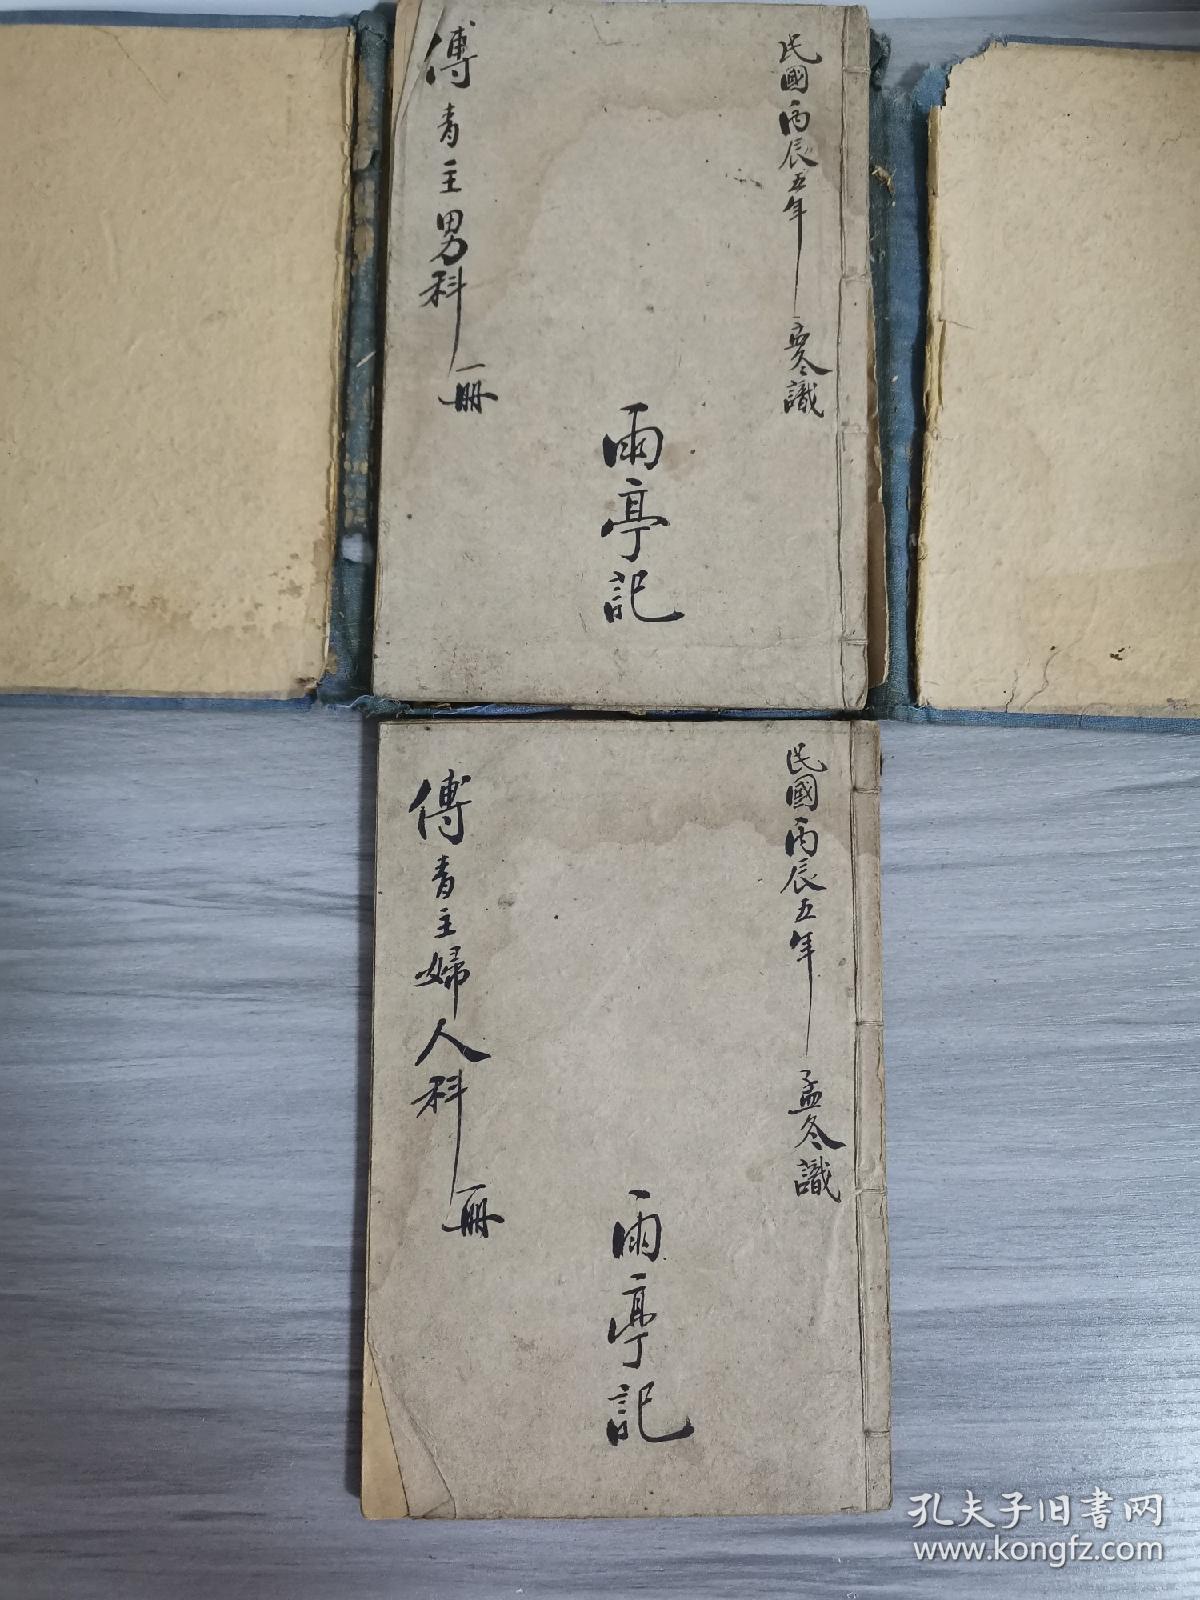 民國丙辰五年 孟冬識
雨亭記
傅青主男科一冊
民國丙辰五年 孟冬識
雨亭記
傅青主婦人科一冊
孔夫子旧書网
www.kongfz.com